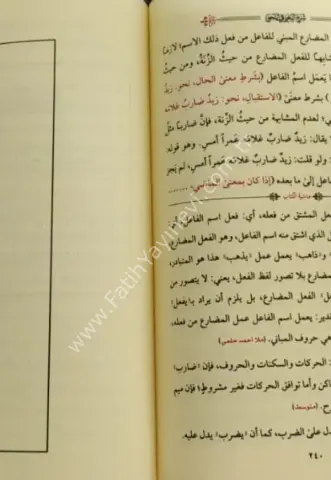 المضارع المبني للفاعل من فعل ذلك الاسم؛ لازما
للفعل المضارع من حيث الزنة، ومن حيث
يعمل اسم الفاعل (بشرط معنى الحال، نحو: زيد
) بشرط معنى (الاستقبال، نحو: زيد ضارب غلامه
؛ لعدم المشابهة من حيث الزنة، فإن ضاربا مثل
يقال: زيد ضارب غلامه عمرا أمس. وهو قوله:
ولو قلت: زيد ضارب غلامه عمرا أمس، لم يجز
إلى ما بعده (إذا كان بمعنى الماضي) ......
حاشية الكتاب
المشتق من فعله، أي: فعل اسم الفاعل، أي
الذي اشتق منه اسم الفاعل، وهو الفعل المضارع،
و«ذاهب» يعمل عمل «يذهب» هذا هو المتبادر،
بلا تصور لفظ الفعل، يعني: لا يتصور من
الفعل المضارع، بل يلزم أن يراد بـ«يفعل»
يعمل اسم الفاعل عمل المضارع من فعله،
هي حروف المباني. (ملا احمد حلمي)
الحركات والسكنات والحروف، فإن «ضارب»
وأما توافق الحركات فغير مشروط؛ فإن ميم
(متوسط)
على الضرب، كما أن «يضرب» يدل عليه.
٢٤٠
www.FatihYayinevi.com.tr